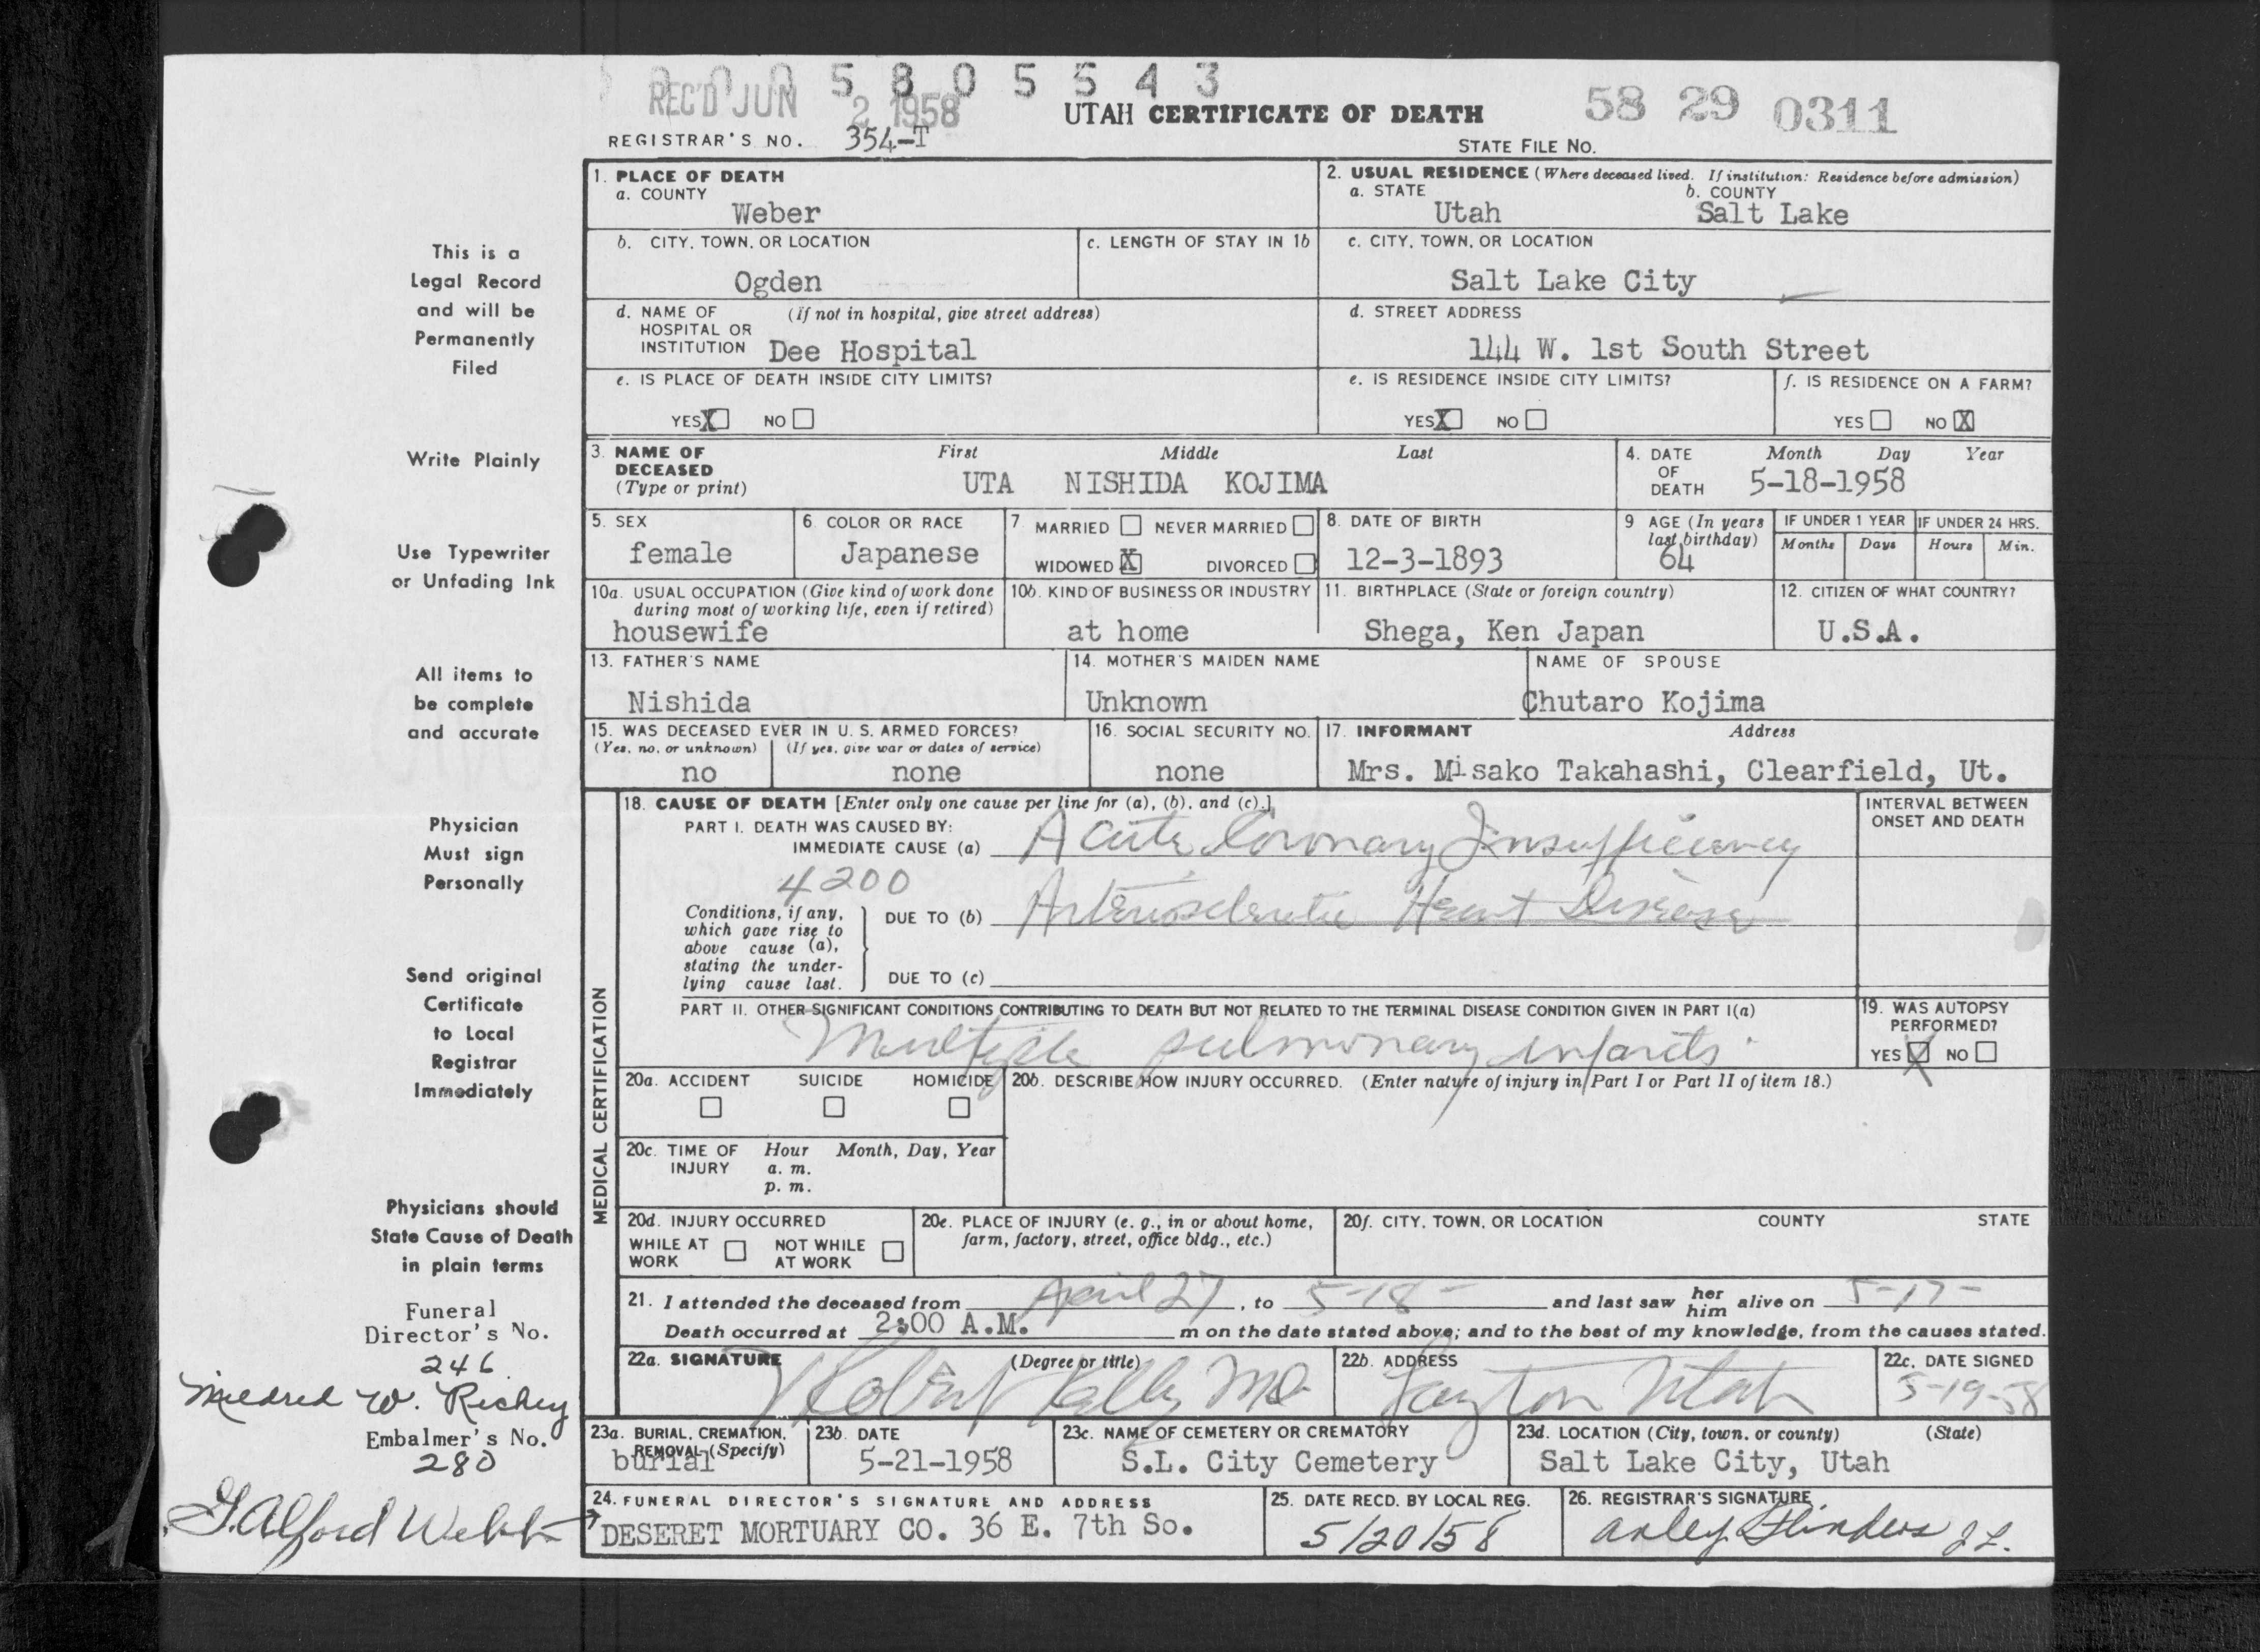 0 0 0 5 8 0 5 5 4 3
REC'D JUN 2 1958
UTAH CERTIFICATE OF DEATH
58 29 0311
REGISTRAR'S NO. 354-T
STATE FILE No.
This is a
Legal Record
and will be
Permanently
Filed
Write Plainly
Use Typewriter
or Unfading Ink
All items to
be complete
and accurate
Physician
Must sign
Personally
Send original
Certificate
to Local
Registrar
Immediately
Physicians should
State Cause of Death
in plain terms
Funeral
Director's No.
246
Mildred W. Richey
Embalmer's No.
280
G. Alford Webb
1. PLACE OF DEATH
a. COUNTY
Weber
2. USUAL RESIDENCE (Where deceased lived. If institution: Residence before admission)
a. STATE b. COUNTY
Utah Salt Lake
b. CITY, TOWN, OR LOCATION
Ogden
c. LENGTH OF STAY IN 1b
c. CITY, TOWN, OR LOCATION
Salt Lake City
d. NAME OF (If not in hospital, give street address)
HOSPITAL OR
INSTITUTION Dee Hospital
d. STREET ADDRESS
144 W. 1st South Street
e. IS PLACE OF DEATH INSIDE CITY LIMITS?
YES X NO
e. IS RESIDENCE INSIDE CITY LIMITS?
YES X NO
f. IS RESIDENCE ON A FARM?
YES NO X
3. NAME OF First Middle Last
DECEASED
(Type or print) UTA NISHIDA KOJIMA
4. DATE Month Day Year
OF
DEATH 5-18-1958
5. SEX
female
6. COLOR OR RACE
Japanese
7 MARRIED NEVER MARRIED
WIDOWED X DIVORCED
8. DATE OF BIRTH
12-3-1893
9 AGE (In years
last birthday)
64
IF UNDER 1 YEAR
Months Days
IF UNDER 24 HRS.
Hours Min.
10a. USUAL OCCUPATION (Give kind of work done
during most of working life, even if retired)
housewife
10b. KIND OF BUSINESS OR INDUSTRY
at home
11. BIRTHPLACE (State or foreign country)
Shega, Ken Japan
12. CITIZEN OF WHAT COUNTRY?
U.S.A.
13. FATHER'S NAME
Nishida
14. MOTHER'S MAIDEN NAME
Unknown
NAME OF SPOUSE
Chutaro Kojima
15. WAS DECEASED EVER IN U. S. ARMED FORCES?
(Yes, no, or unknown) (If yes, give war or dates of service)
no none
16. SOCIAL SECURITY NO.
none
17. INFORMANT Address
Mrs. Misako Takahashi, Clearfield, Ut.
MEDICAL CERTIFICATION
18. CAUSE OF DEATH [Enter only one cause per line for (a), (b), and (c).]
INTERVAL BETWEEN
ONSET AND DEATH
PART I. DEATH WAS CAUSED BY:
IMMEDIATE CAUSE (a) Acute Coronary Insufficiency
4200
Conditions, if any,
which gave rise to
above cause (a),
stating the under-
lying cause last.
DUE TO (b) Arteriosclerotic Heart Disease
DUE TO (c)
PART II. OTHER SIGNIFICANT CONDITIONS CONTRIBUTING TO DEATH BUT NOT RELATED TO THE TERMINAL DISEASE CONDITION GIVEN IN PART I(a)
Multiple pulmonary infarcts
19. WAS AUTOPSY
PERFORMED?
YES X NO
20a. ACCIDENT SUICIDE HOMICIDE
20b. DESCRIBE HOW INJURY OCCURRED. (Enter nature of injury in Part I or Part II of item 18.)
20c. TIME OF Hour Month, Day, Year
INJURY a. m.
p. m.
20d. INJURY OCCURRED
WHILE AT NOT WHILE
WORK AT WORK
20e. PLACE OF INJURY (e. g., in or about home,
farm, factory, street, office bldg., etc.)
20f. CITY, TOWN, OR LOCATION COUNTY STATE
21. I attended the deceased from April 27, to 5-18- and last saw her him alive on 5-17-
Death occurred at 2:00 A.M. m on the date stated above; and to the best of my knowledge, from the causes stated.
22a. SIGNATURE (Degree or title)
Robert Kelly MD
22b. ADDRESS
Layton Utah
22c. DATE SIGNED
5-19-58
23a. BURIAL, CREMATION,
REMOVAL (Specify)
burial
23b. DATE
5-21-1958
23c. NAME OF CEMETERY OR CREMATORY
S.L. City Cemetery
23d. LOCATION (City, town, or county) (State)
Salt Lake City, Utah
24. FUNERAL DIRECTOR'S SIGNATURE AND ADDRESS
DESERET MORTUARY CO. 36 E. 7th So.
25. DATE RECD. BY LOCAL REG.
5/20/58
26. REGISTRAR'S SIGNATURE
Arley Flinders